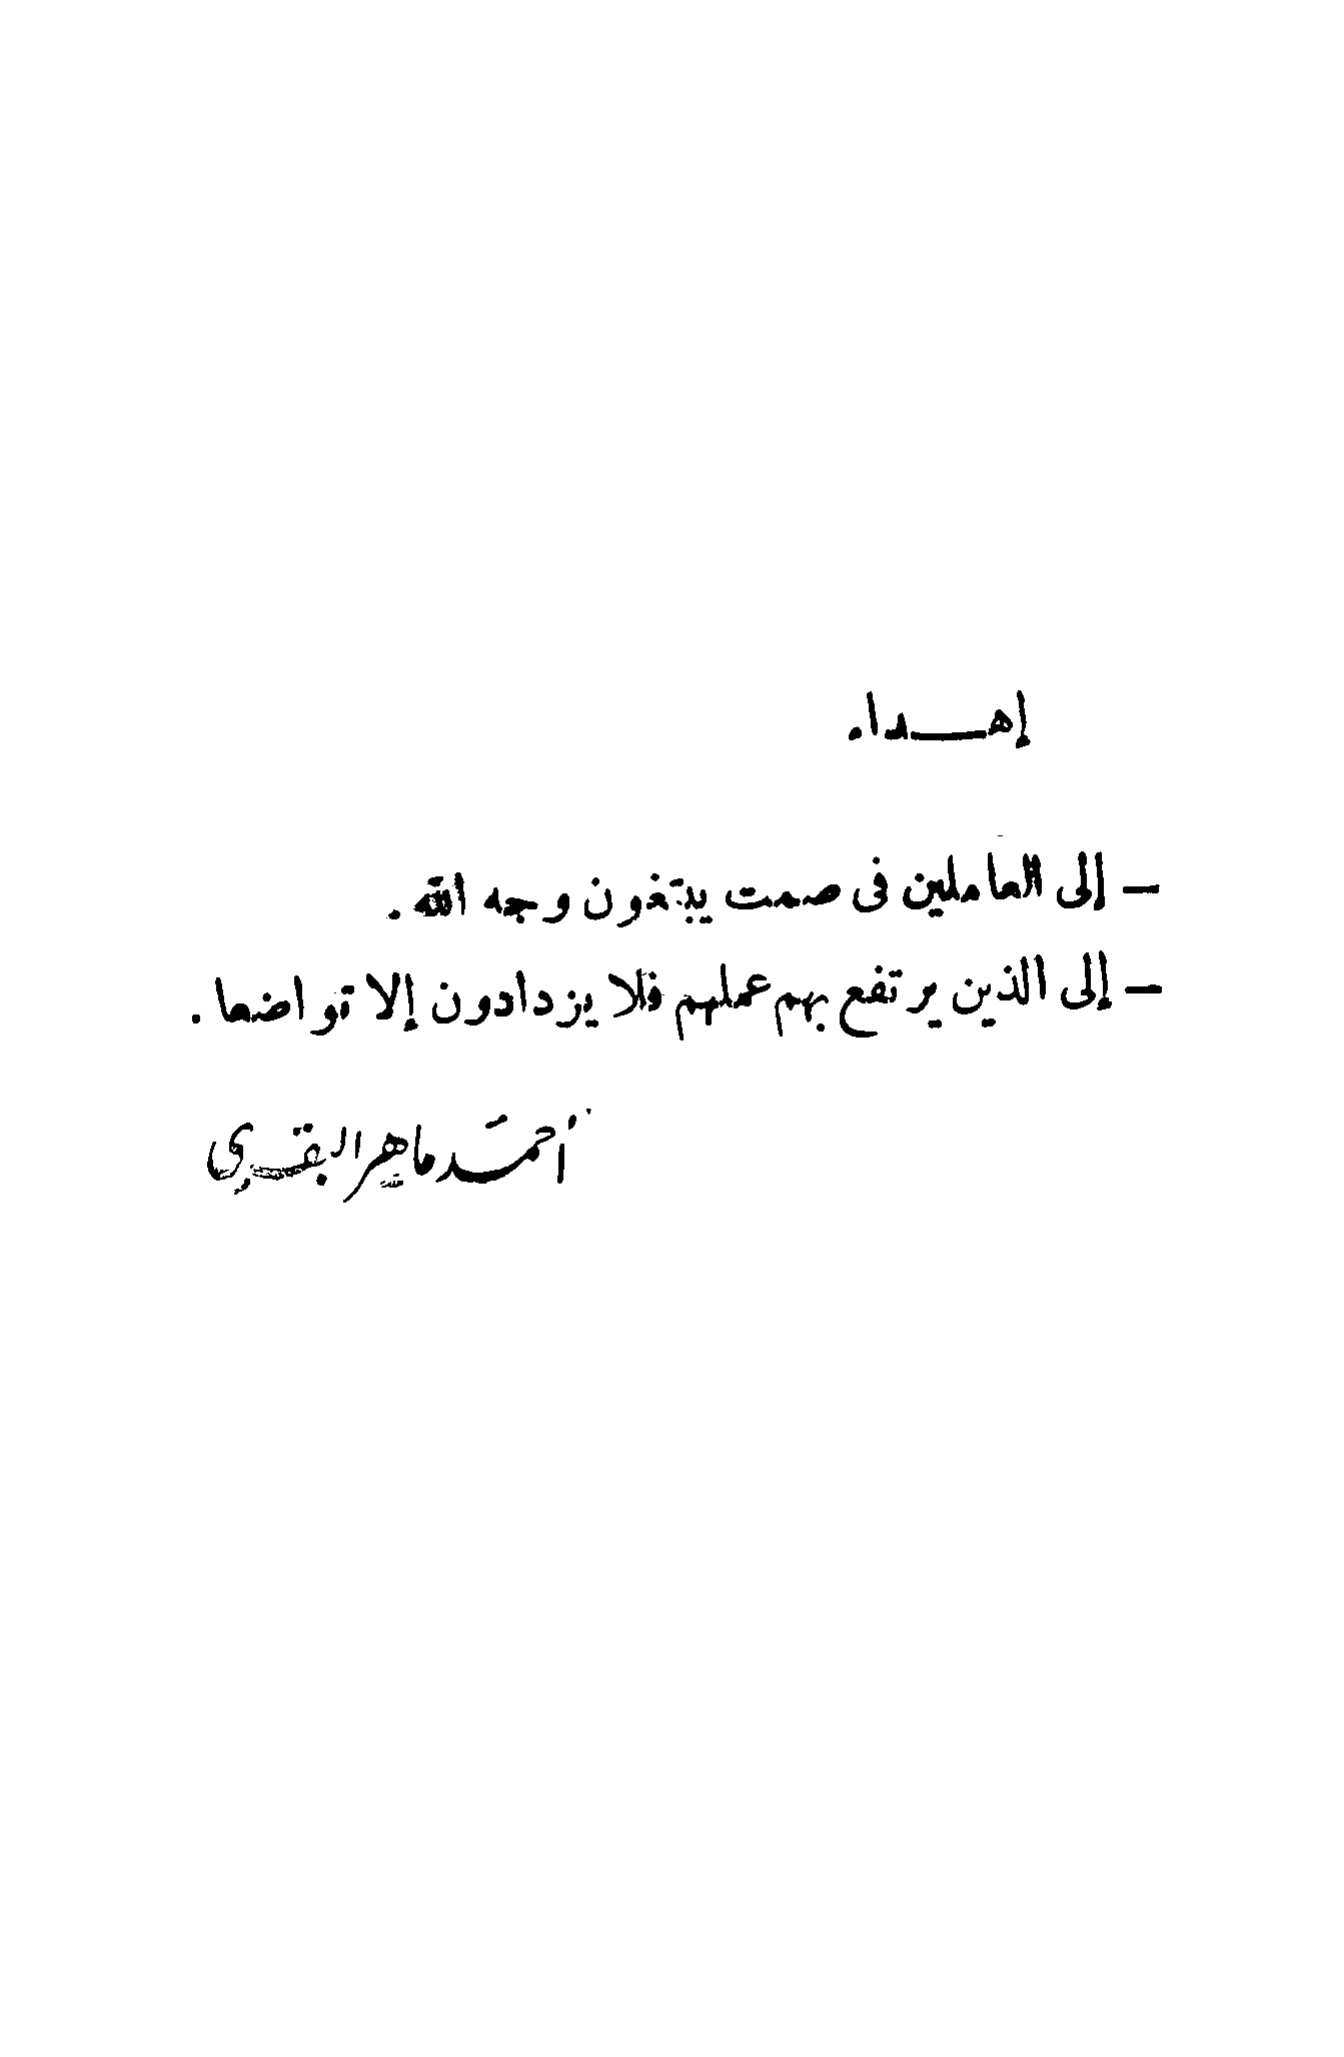 إهـــداء
— إلى العاملين فى صمت يبتغون وجه الله .
— إلى الذين يرتفع بهم عملهم فلا يزدادون إلا تواضعا .
أحمد ماهر البقري